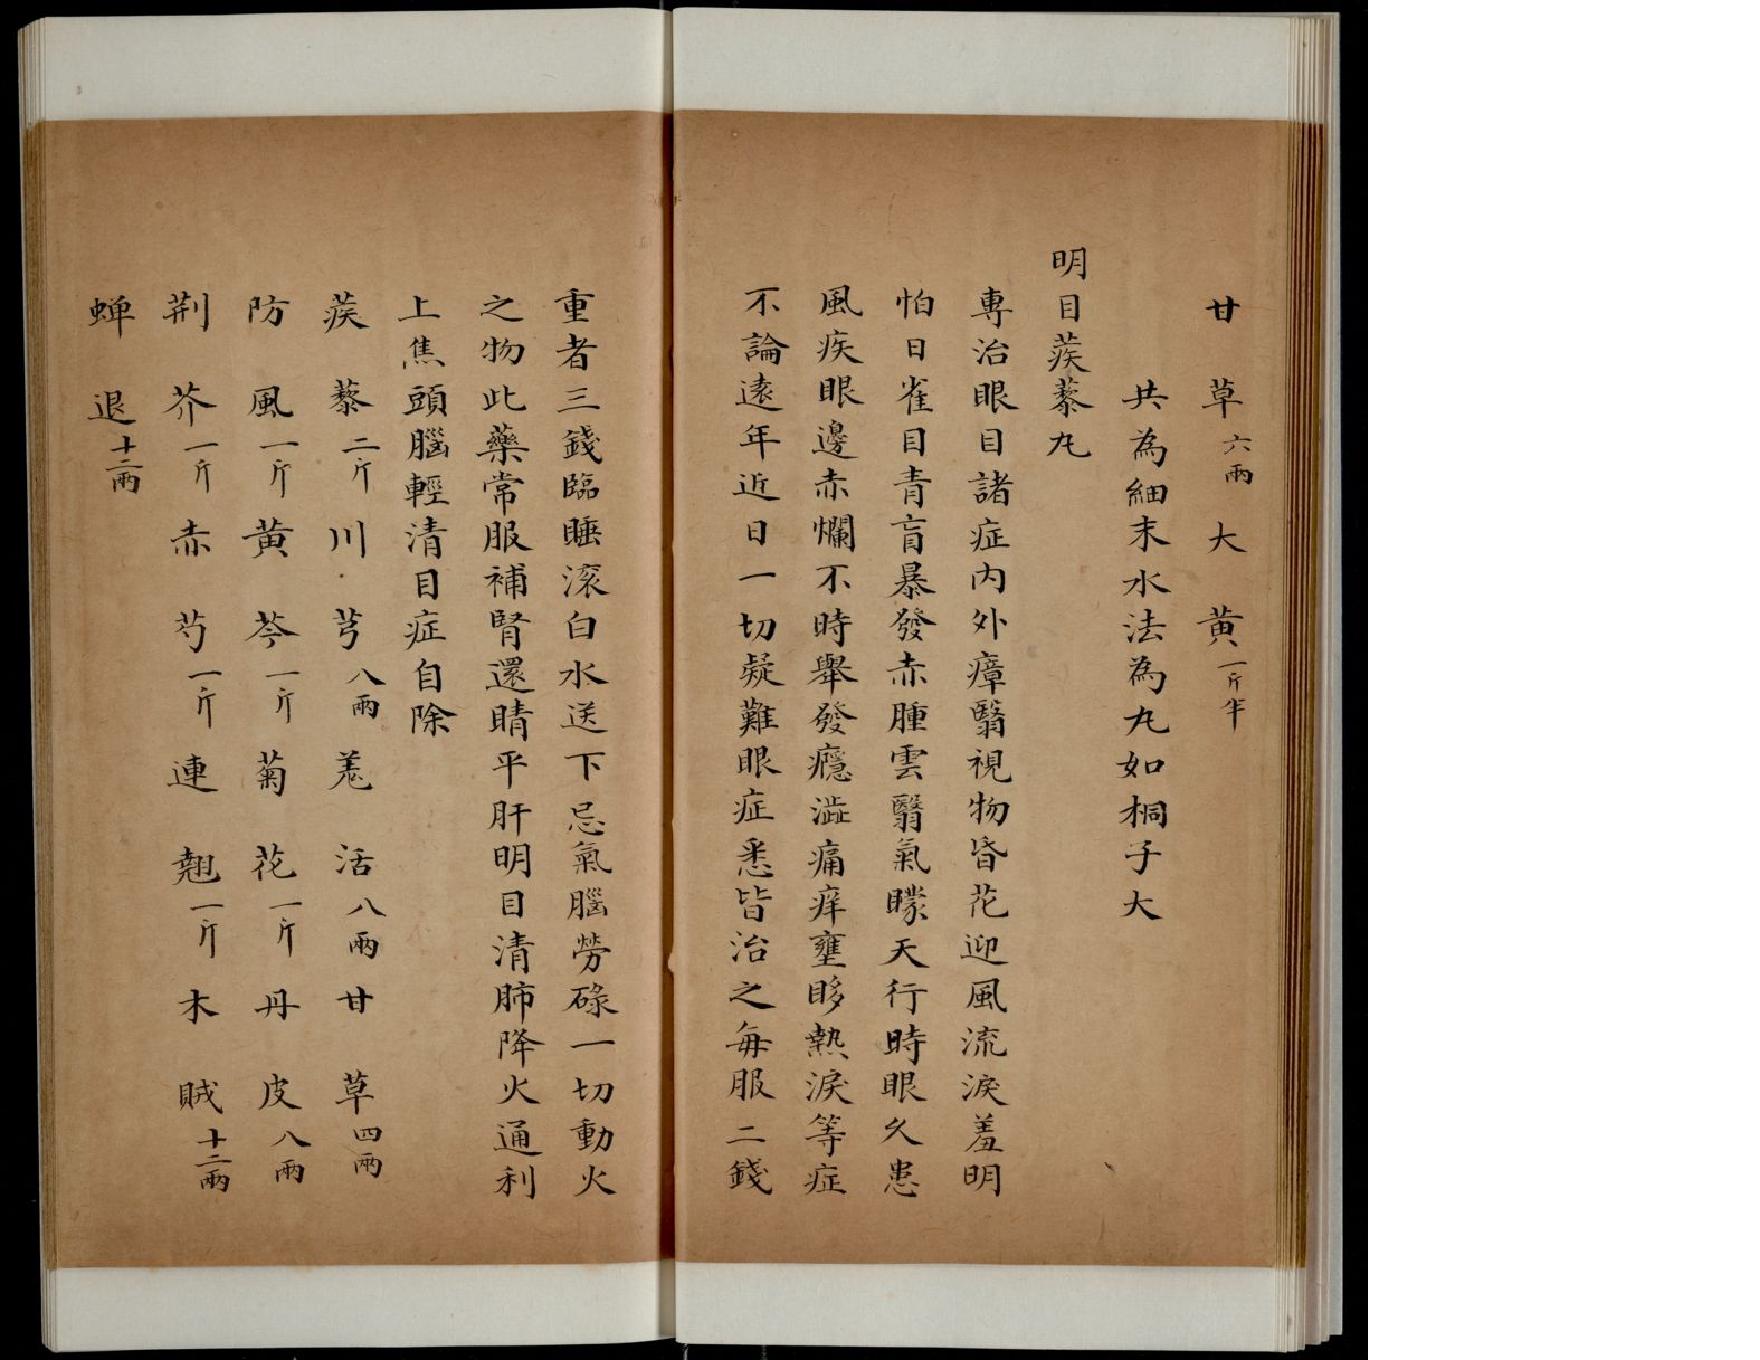 甘草六兩大黄一斤半
共為細末水法為丸如桐子大
明目蒺藜丸
專治眼目諸症内外瘴翳視物昏花迎風流淚羞明
怕日雀目青盲暴發赤腫雲翳氣矇天行時眼久患
風疾眼邊赤爛不時舉發癮澁痛痒壅眵熱淚等症
不論遠年近日一切疑難眼症悉皆治之每服二錢
重者三錢臨睡滚白水送下忌氣腦勞碌一切動火
之物此藥常服補腎還睛平肝明目清肺降火通利
上焦頭腦輕清目症自除
蒺藜二斤川芎八兩羗活八兩甘草四兩
防風一斤黄芩一斤菊花一斤丹皮八兩
荆芥一斤赤芍一斤連翹一斤木賊十二兩
蟬退十二兩